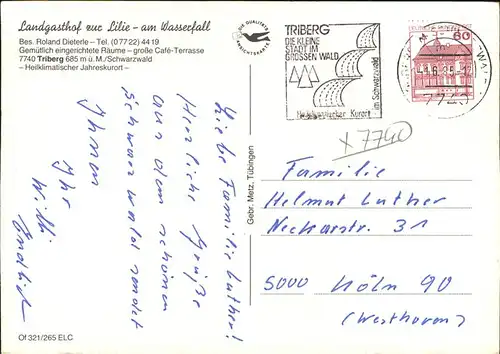 Landgasthof zur Lilie – am Wasserfall
Bes. Roland Dieterle – Tel. (07722) 4419
Gemütlich eingerichtete Räume – große Café-Terrasse
7740 Triberg 685 m ü. M./Schwarzwald
– Heilklimatischer Jahreskurort –
DIE QUALITÄTS
TRIBERG
DIE KLEINE
STADT IM
GROSSEN WALD
Heilklimatischer Kurort
im Schwarzwald
60
7740
x 7740
Liebe Familie Luther!
Herzliche Grüße
aus dem schönen
Schwarzwald sendet
Ihnen
Ihr
Willi
Gebr. Metz, Tübingen
Familie
Helmut Luther
Neckarstr. 31
5000 Köln 90
(Westhoven)
Of 321/265 ELC